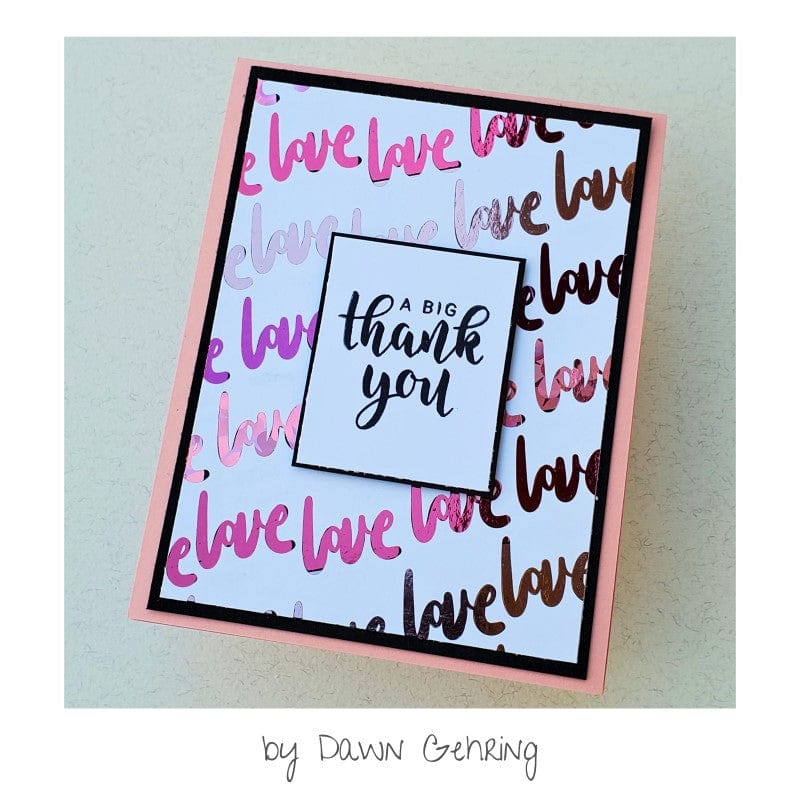 e love love love
e love love love
e love love
A BIG
thank
you
e love love
e love love love love
love love
by Dawn Gehring